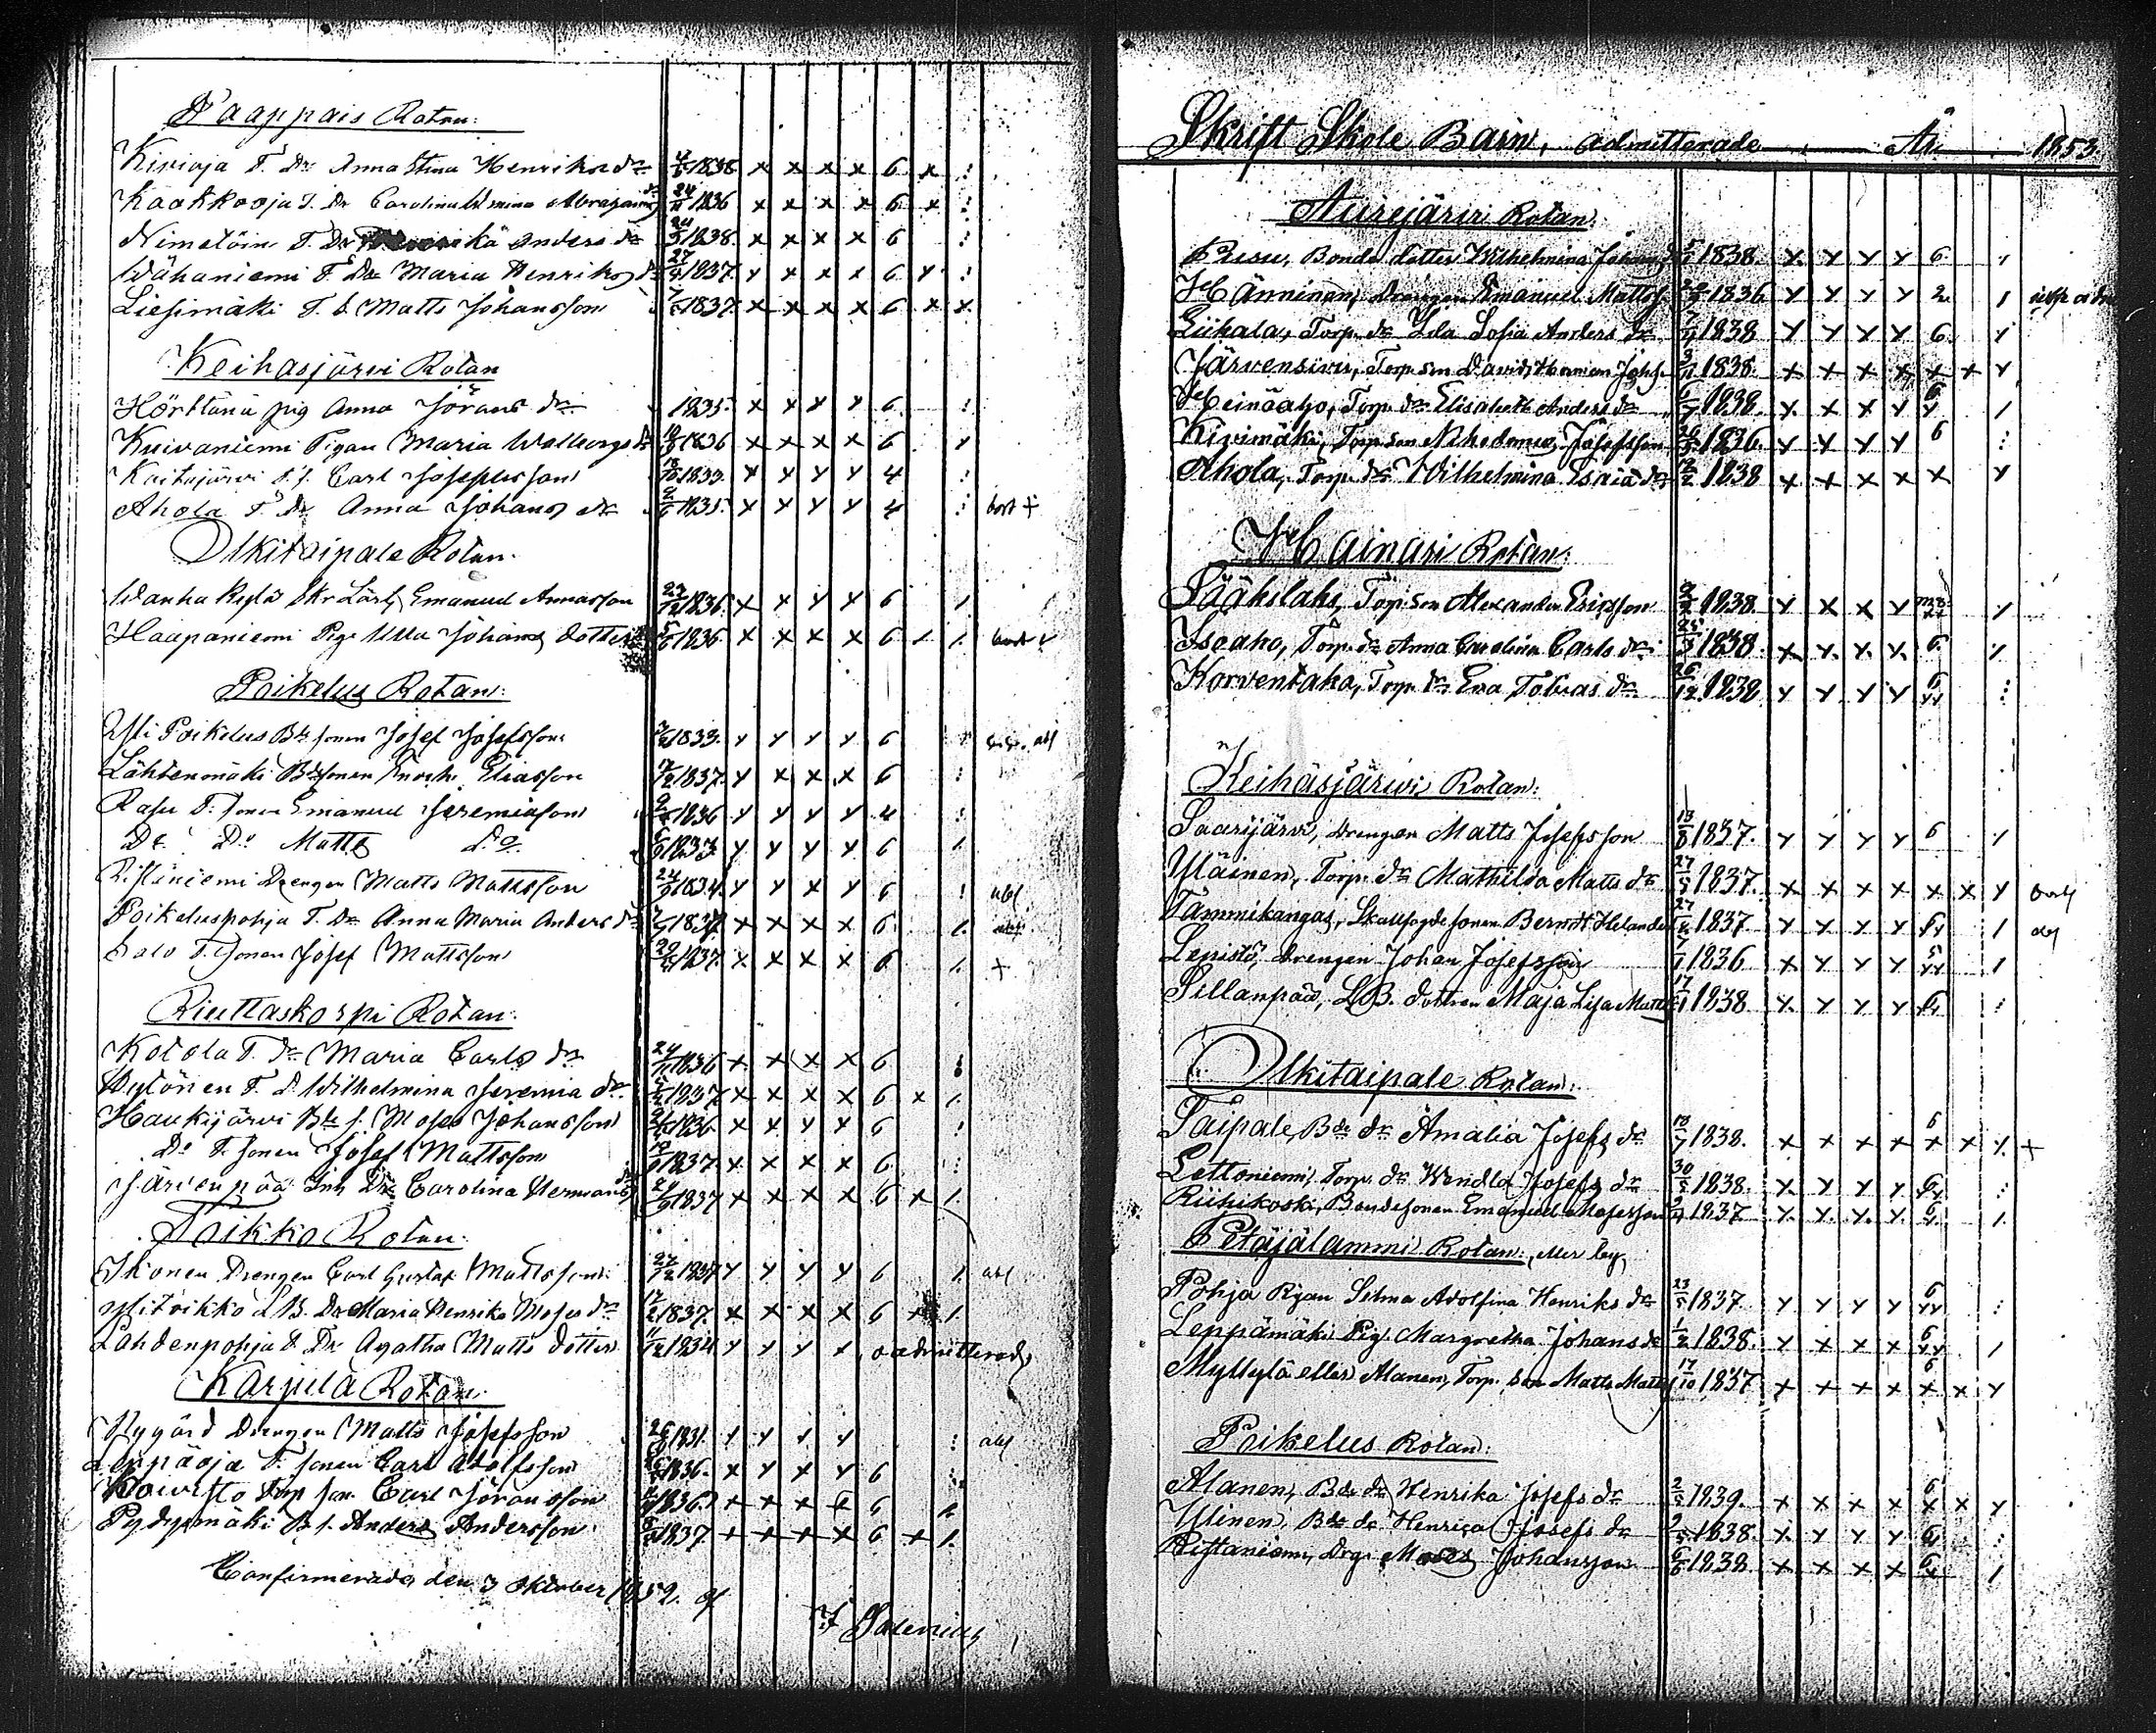 Paappais Rotan:
Kivioja T. Dr Anna Stina Henriksdr 4/5 1838 x x x x 6 x
Kaakkooja T. Dr Carolina Wilmina Abrahams dr 24 1836 x x x x 6 x
Nimetöin T. Dr Anders dr 24/3 1838. x x x x 6
Wähäniemi T. Dr Maria Henriks dr 27 1837. x x x x 6 x
Liesimäki T. S. Matts Johansson 7 1837. x x x x 6 x x
Keihäsjärvi Rotan
Hörttänä pig Anna Jörans dr 1835. x x x x 6
Kuivaniemi Pigan Maria Wallborgs dr 1836 x x x x 6
Kaitajärvi T. s. Carl Josephsson 18/10 1833. x x x x 4
Ahola T. Dr Anna Johans dr 2/6 1835. x x x x 4 bort +
Olkitaipale Rotan.
Wanha Kylä Skr Lärl. Emanuel Annasson 22/12 1836. x x x x 6
Haapaniemi Pig. Ulla Johans dotter 5/6 1836. x x x x 6
Poikelus Rotan:
Yli Poikelus Bde sonen Josef Josefsson 1833. x x x x 6
Lähtenmäki Bdesonen Enoch Eliasson 17/12 1837. x x x x 6
Rasu T. sonen Emanuel Jeremiasson 1836 x x x x 4
Do Do Matts Do 1833. x x x x 6
Ristaniemi Drengen Matts Mattsson 24/9 1834. x x x x 6 abs
Poikeluspohja T. Dr Anna Maria Anders dr 1837 x x x x 6
Salo T. sonen Josef Mattsson 29 1837. x x x x 6 +
Riuttaskorpi Rotan:
Kotola T. dr Maria Carls dr 24/11 1836 x x x x 6
Kytönen T. D. Wilhelmina Jeremia dr 1837 x x x x 6 x
Haukijärvi Bde s. Moses Johansson 1836 x x x x 6
Do T. sonen Josef Mattsson 1837. x x x x 6
Järvenpää Inh Dr Carolina Hermans dr 24/9 1837 x x x x 6 x
Toikko Rotan:
Ikonen Drengen Carl Gustaf Mattsson 27/12 1837 x x x x 6 abs
Ylitoikko L B. Dr Maria Henrika Moses dr 17/2 1837. x x x x 6
Lahdenpohja T. Dr Agatha Matts dotter 11/12 1834 x x x x oadmitterad,
Karjula Rotan:
Nygård Drengen Matts Josefsson 26 1831. x x x x abs
Leppäoja T. sonen Carl Adolfsson 1836. x x x x 6
Koivisto Torp son Carl Jöransson 1836. x x x 6
Pydysmäki B s. Anders Andersson 1837. x x x x 6 x
Confirmerade den 3 oktober 1852. af
F Salenius
Skrift Skole Barn, admitterade År 1853
Aurejärvi Rotan:
Rusu, Bonde dotter Wilhelmina Johans dr 5 1838. x x x x 6
Hänninen, Drengen Emanuel Mattss. 1836 x x x x 2
Liihala, Torp. dr Ida Sofia Anders dr 7/4 1838 x x x x 6
Järvensivu, Torp. son David Herman Johss. 3/11 1838. x x x x x x x
Heinäaho, Torp. dr Elisabeth Anders dr 6/7 1838. x x x x 6
Kivimäki, Torp. son Nikodemus Josefsson 1836. x x x x 6
Ahola, Torp. dr Wilhelmina Esaia dr 12/2 1838 x x x x x x
Hainari Rotan:
Sääkslahi, Torp. son Alexander Ericsson 1838. x x x x
Isoaho, Torp. dr Anna Carolina Carls dr 25/3 1838 x x x x 6
Korventaka, Torp. dr Eva Tobias dr 26/12 1838 x x x x 6
Keihäsjärvi Rotan:
Saarijärvi, Drengen Matts Josefsson 13/8 1837. x x x x 6
Yläinen, Torp. dr Mathilda Matts dr 27/5 1837. x x x x x x x bort
Tammikangas, Skallfogdesonen Berndt Helander 27 1837 x x x x 6 abs
Lepistö, Drengen Johan Josefsson 7 1836 x x x x 5
Sillanpää, L.B. dottren Maja Lisa Matts 17/1 1838 x x x x 6
Olkitaipale Rotan:
Taipale Bde dr Amalia Josefs dr 18/7 1838. x x x x x x x +
Lettoniemi, Torp. dr Wendla Josefs dr 30/5 1838. x x x x 6
Riihikoski, Bondesonen Emanuel Mosesson 2 1837 x x x x 6
Petäjälammi Rotan:
Pohja Pigan Selma Adolfina Henriks dr 23/5 1837 x x x x 6
Leppämäki Pig. Margretha Johans dr 1/2 1838. x x x x 6
Myllylä eller Alanen, Torp. son Matts Mattss. 17/10 1837 x x x x 6 x x
Poikelus Rotan:
Alanen, Bde dr Henrika Josefs dr 2 1839. x x x x 6 x x
Ylinen, Bde dr Henrica Josefs dr 1838. x x x x 6
Ristaniemi, Drg. Moses Johansson 6/6 1838 x x x x 6